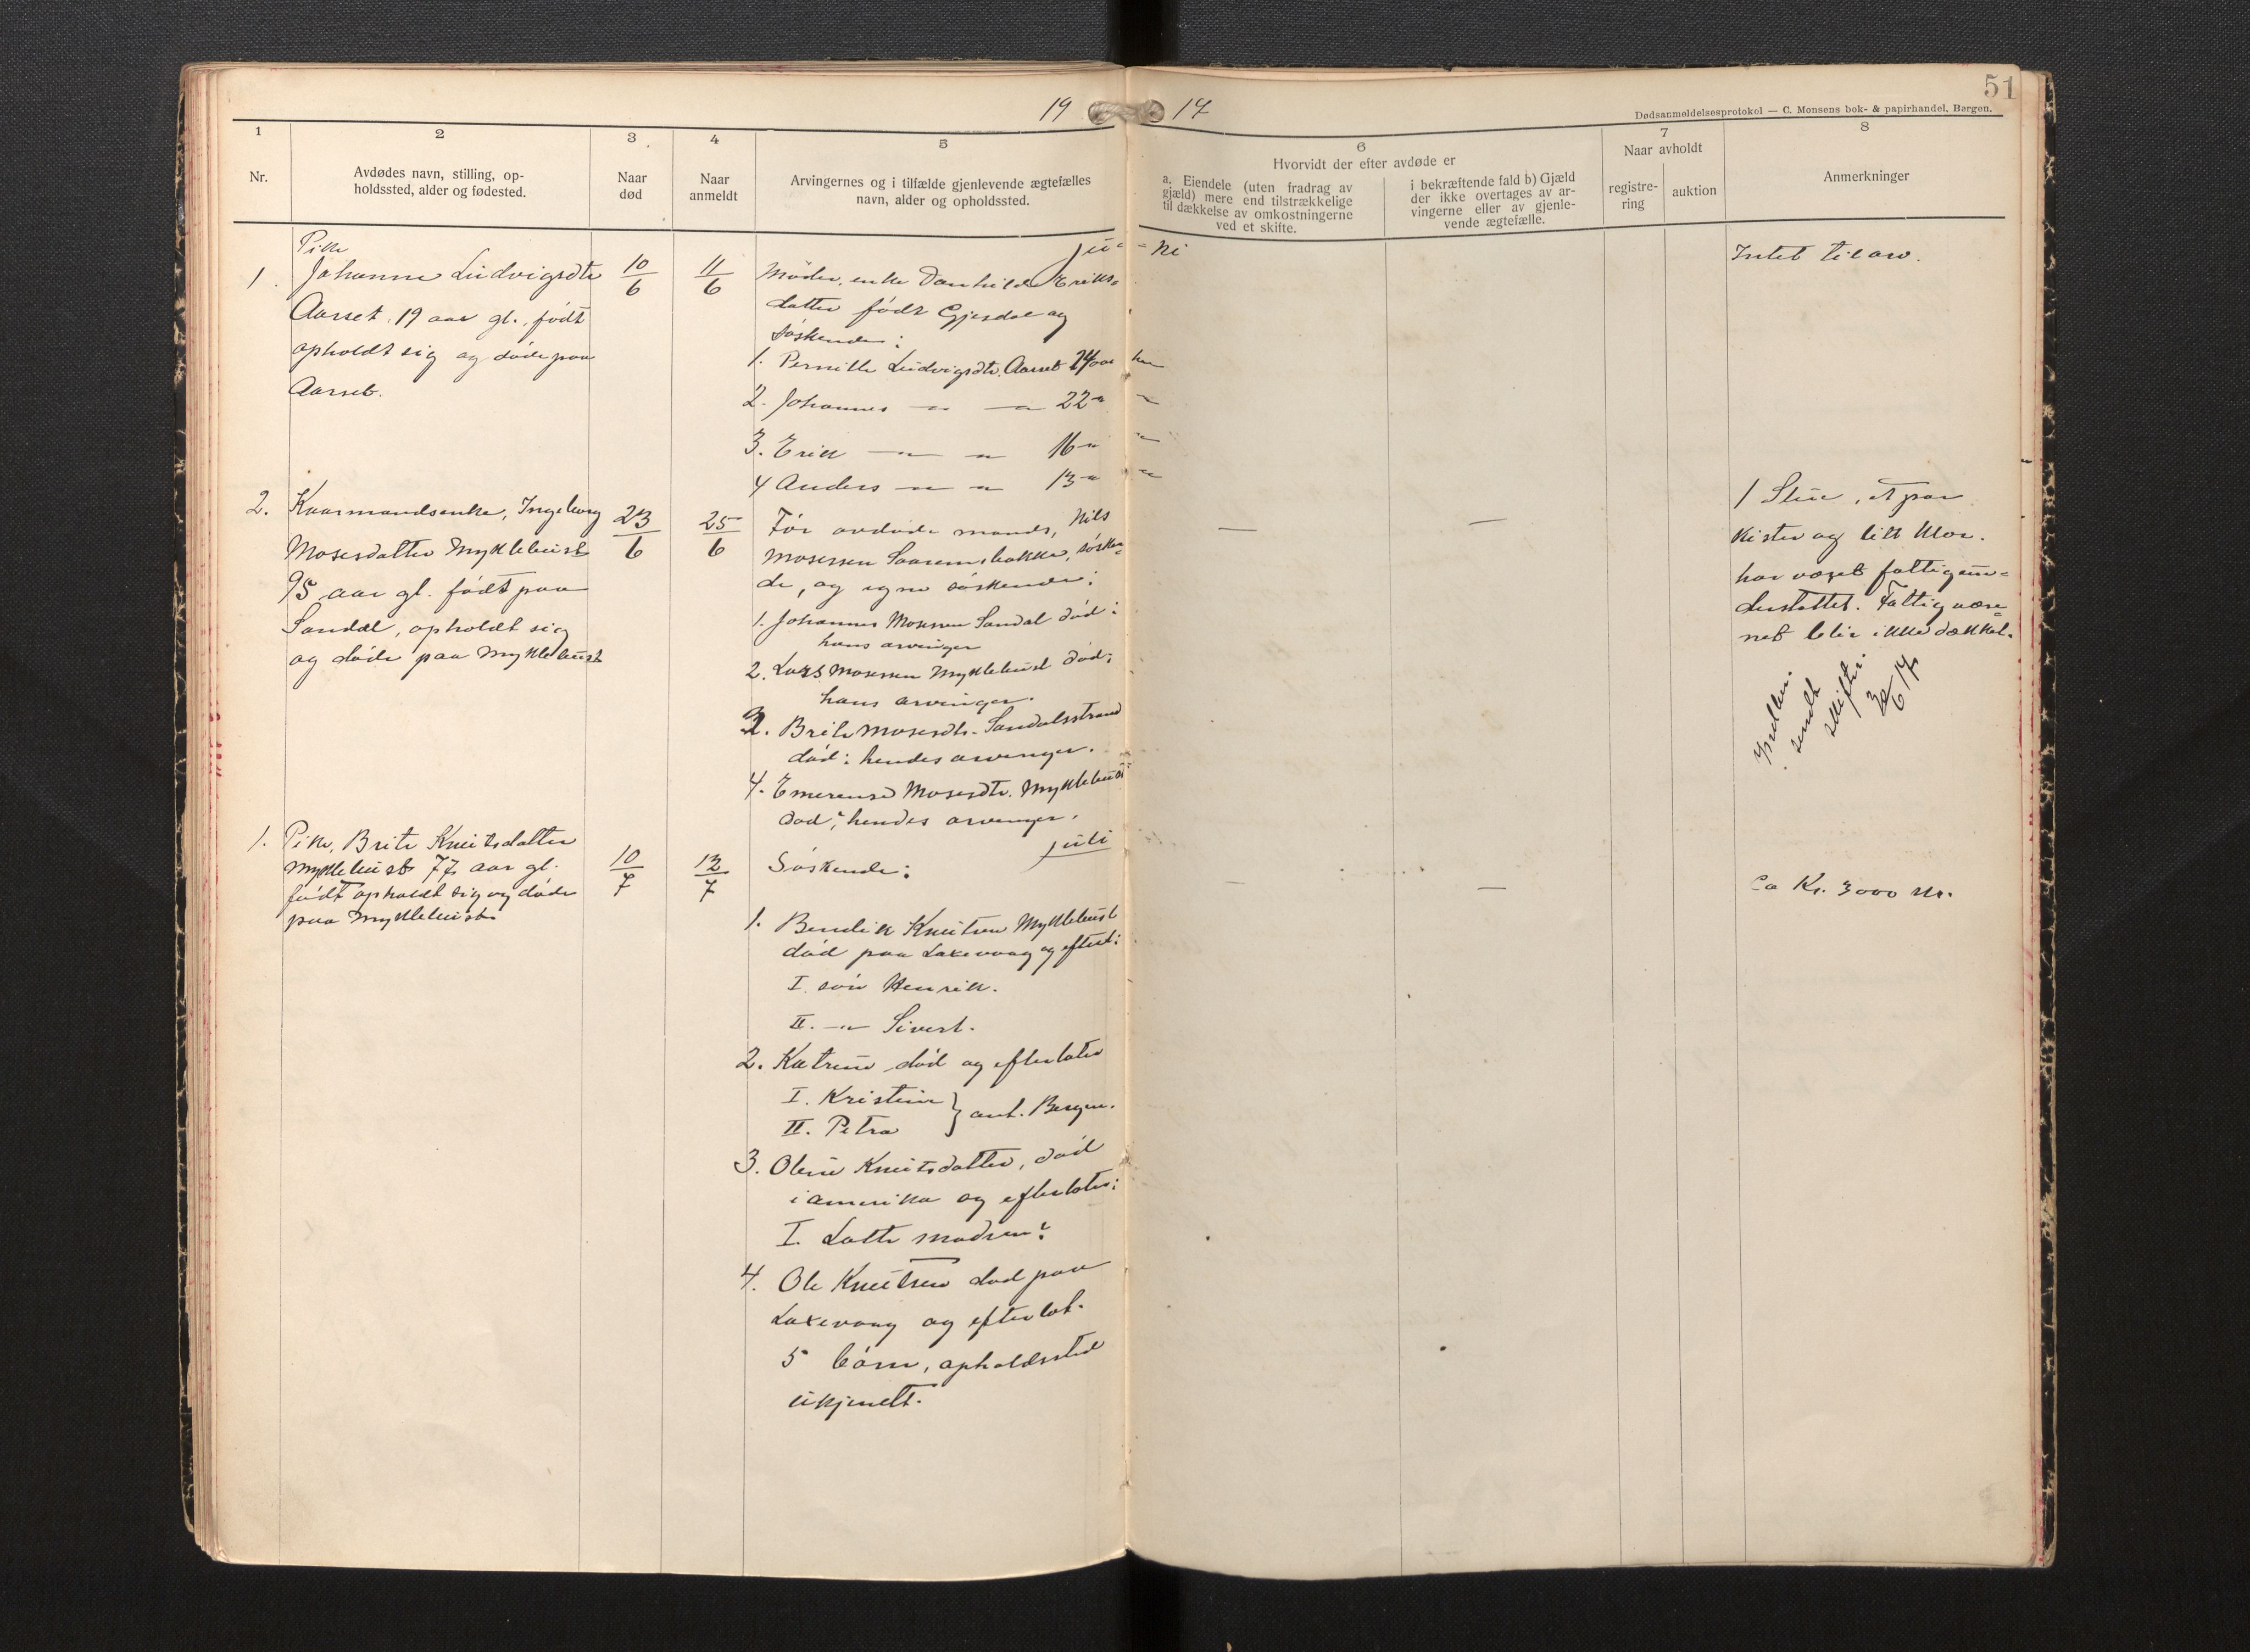 51
19 17
Dødsanmeldelsesprotokol — C. Monsens bok- & papirhandel. Bergen.
1
Nr.
2
Avdødes navn, stilling, op-
holdssted, alder og fødested.
3
Naar
død
4
Naar
anmeldt
5
Arvingernes og i tilfælde gjenlevende ægtefælles
navn, alder og opholdssted.
6
Hvorvidt der efter avdøde er
a. Eiendele (uten fradrag av
gjæld) mere end tilstrækkelige
til dækkelse av omkostningerne
ved et skifte.
i bekræftende fald b) Gjæld
der ikke overtages av ar-
vingerne eller av gjenle-
vende ægtefælle.
7
Naar avholdt
registre-
ring
auktion
8
Anmerkninger
Juni
1. Pike
Johanne Ludvigsdtr
Aarset, 19 aar gl., født
opholdt sig og døde paa
Aarset.
10/6
11/6
Moder, enke Danhilde Eriks-
datter født Gjesdal og
søskende:
1. Pernille Ludvigsdtr. Aarset 24 aar her
2. Johannes —"— —"— 22 " "
3. Erik —"— —"— 16 " "
4 Anders —"— —"— 13 " "
Intet til arv.
2. Kaarmandsenke, Ingeborg
Mosesdatter Myklebust
95 aar gl. født paa
Sandal, opholdt sig
og døde paa Myklebust
23/6
25/6
Før avdøde mands, Nils
Mosessen Saaremsbakke, søsken-
de, og egne søskende:
1. Johannes Mosessen Sandal død:
hans arvinger
2. Lars Mosessen Myklebust død:
hans arvinger.
3. Brite Mosesdtr. Sandalsstrand
død: hendes arvinger.
4. Emerense Mosesdtr. Myklebust
død; hendes arvinger.
— —
1 Stue, et par
kister og litt klær.
har været fattigun-
derstøttet. Fattigvæse-
net blir ikke dækket.
sendt
skifter.
6 17
juli
1. Pike, Brite Knutsdatter
Myklebust 77 aar gl.
født opholdt sig og døde
paa Myklebust
10/7
12/7
Søskende:
1. Bendik Knutsen Myklebust
død paa Laxevaag og efterl:
I. søn Henrik.
II. —"— Sivert.
2. Katrine død og efterlater
I. Kristine } ant. Bergen.
II. Petra
3. Oline Knutsdatter, død
i Amerika og efterlater:
I. Lotte Madsen?
4. Ole Knutsen død paa
Laxevaag og efterlot.
5 børn, opholdssted
ukjendt.
— —
Ca Kr. 3000 kr.